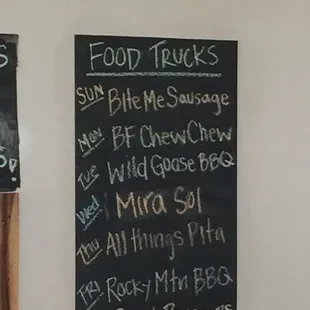 FOOD TRUCKS
SUN Bite Me Sausage
MON BF Chew Chew
TUE Wild Goose BBQ
Wed Mira Sol
THU All things Pita
FRI Rocky Mtn BBQ